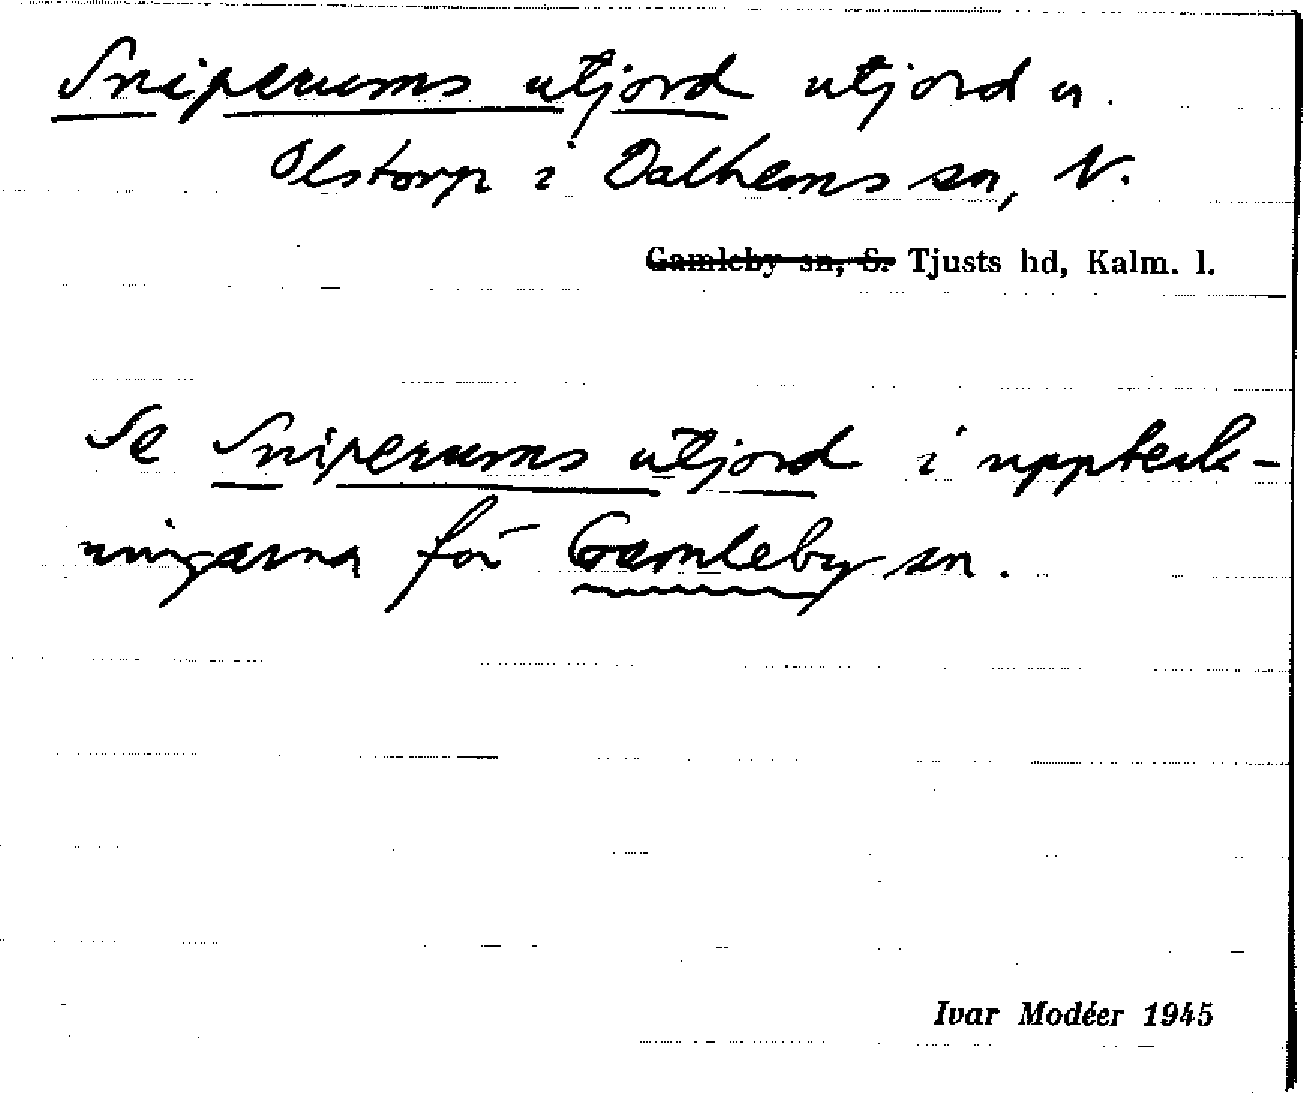 Sniperums utjord utjord u.
Olstorp i Dalhems sn, N.
Gamleby sn, S. Tjusts hd, Kalm. l.
Se Sniperums utjord i uppteck-
ningarna för Gamleby sn.
Ivar Modéer 1945